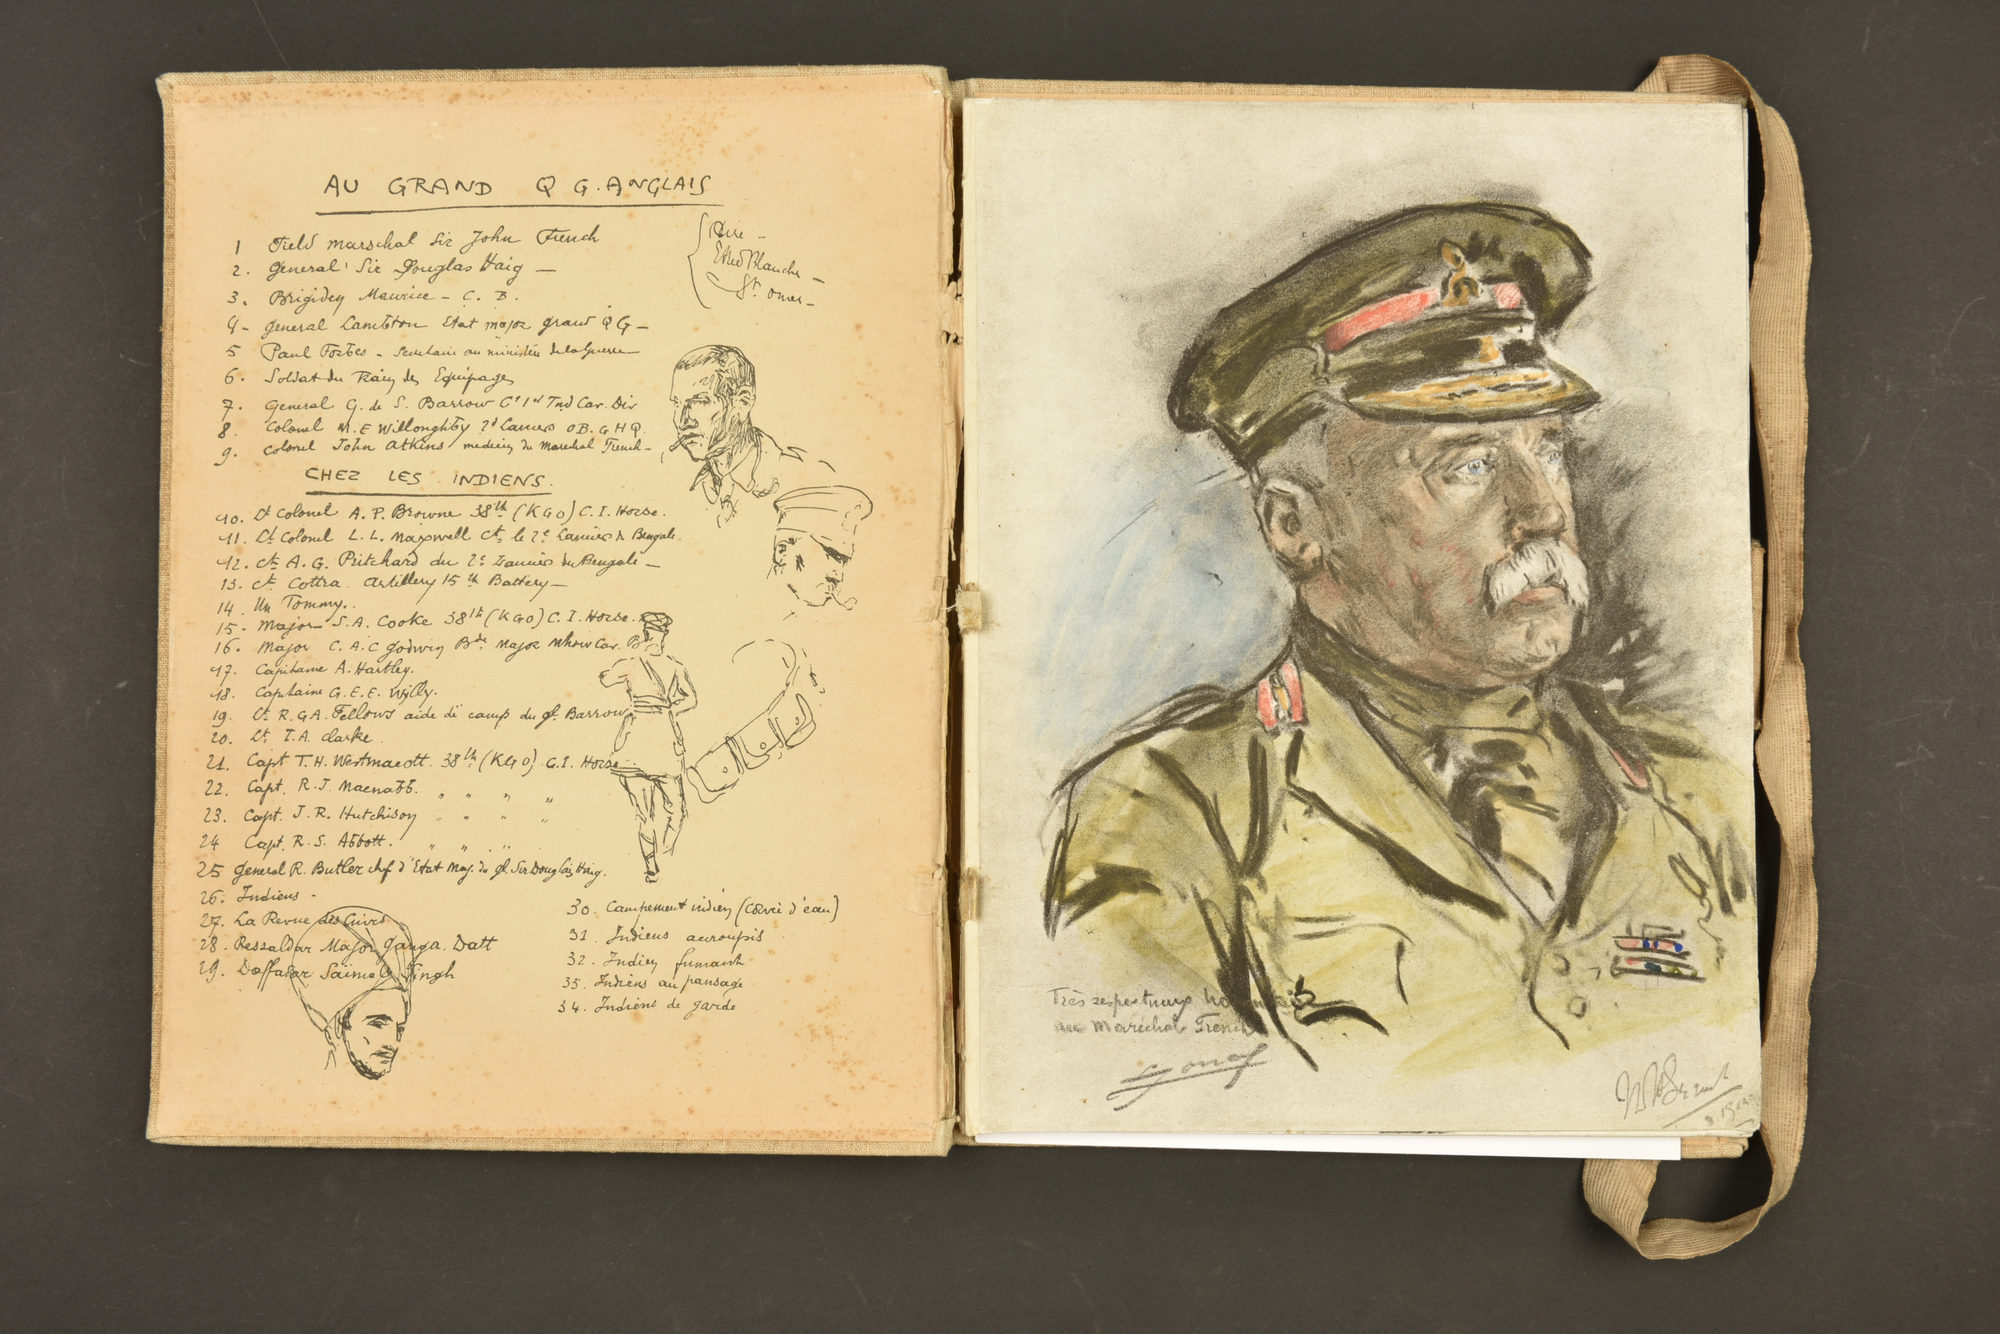 AU GRAND Q G. ANGLAIS
1 Field marschal Sir John French
2. general Sir Douglas Haig —
3. Brigidey Maurice — C. B.
4- general Lambton Etat major grand Q G —
5 Paul Forbes - Secrétaire au ministère de la Guerre
6. Soldat du Train des Equipages
7. General G. de S. Barrow Ct 1st Ind Car. Div
8. Colonel M. E Willoughby 2d Lancers O B. G H Q.
9. Colonel John Atkins medecin du Marechal French -
Aire -
St. Omer -
CHEZ LES INDIENS.
10. Lt Colonel A. P. Browne 38th (K G O) C. I. Horse.
11. Lt Colonel L. L. Maxwell Ct. le 2e Lancier du Bengale.
12. Ct. A. G. Pritchard du 2e Lancier du Bengale —
13. Ct. Cottra. Artillery 15th Battery —
14. Un Tommy..
15- Major S. A. Cooke 38th (K G O) C. I. Horse.
16. Major C. A. C Godwin Bde Major Mhow Cav. Bde
17. Capitaine A. Hartley.
18. Capitaine G. E. E. Willy.
19. Lt R. G A. Fellows aide de camp du gl. Barrow
20. Lt. I. A. Clarke
21. Capt T. H. Westmacott. 38th (K G O). C. I. Horse
22. Capt. R. J. Macnabb. " " " "
23. Capt. J. R. Hutchison " " " "
24 Capt. R. S. Abbott. " " " "
25 general R. Butler chef d'Etat Maj. du gl. Sir Douglas Haig.
26. Indiens -
27. La Revue des
28. Ressaldar Major Ganga. Datt
29. Daffadar Singh
30. Campement indien (Corvée d'eau)
31. Indiens accroupis
32. Indien fumant
33. Indiens au pansage
34. Indiens de garde
Très respectueux hommages
au Maréchal French